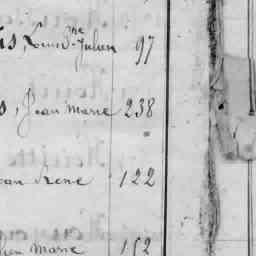 is, Louis Julien 97
s, Jean Marie 238
ean René 122
lien Marie 152